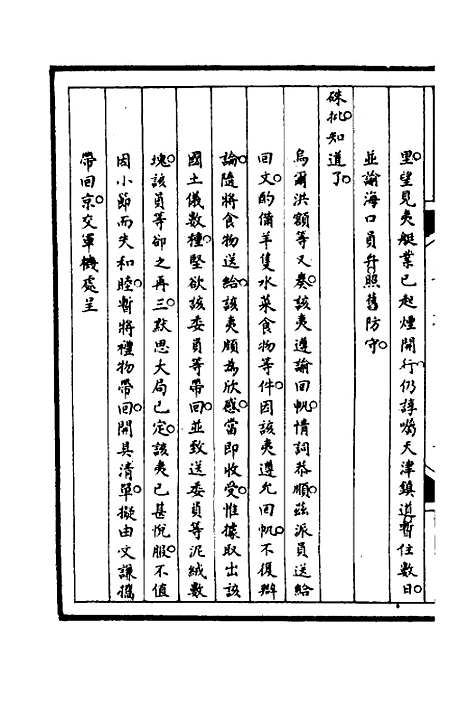 里。望見夷艇業已起煙開行。仍諄囑天津鎮道暫住數日。
並諭海口員弁照舊防守。
硃批。知道了。
烏爾洪額等又奏。該夷遵諭回帆。情詞恭順。茲派員送給
回文。酌備羊隻水菜食物等件。因該夷遵允回帆。不復辯
論。隨將食物送給。該夷頗為欣感。當即收受。惟據取出該
國土儀數種。堅欲該委員等帶回。並致送委員等泥絨數
塊。該員等卻之再三。默思大局已定。該夷已甚悅服。不值
因小節而失和睦。暫將禮物帶回。開具清單。擬由文謙攜
帶回京。交軍機處呈